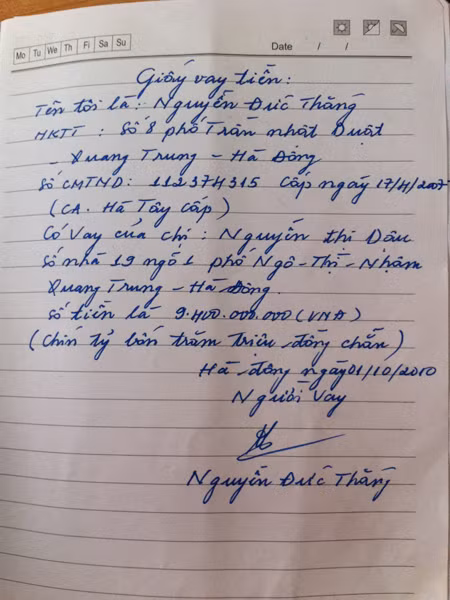 Mo Tu We Th Fi Sa Su
Date / /
Giấy vay tiền:
Tên tôi là: Nguyễn Đức Thắng
HKTT: Số 8 phố Trần nhật Duật
- Quang Trung - Hà Đông
Số CMTND: 112374315 Cấp ngày 17/4/2007
(CA. Hà Tây Cấp)
Có Vay của chị: Nguyễn thị Dâu
Số nhà 19 ngõ 1 phố Ngô-Thị-Nhậm
Quang Trung - Hà Đông.
Số tiền là 9.400.000.000 (VNĐ)
(Chín tỷ bốn trăm triệu đồng chẵn)
Hà-đông ngày 01/10/2010
Người Vay
Nguyễn Đức Thắng